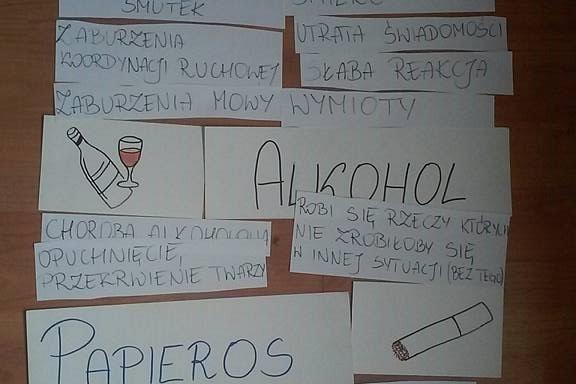 SMUTEK
ŚMIERĆ
ZABURZENIA
KOORDYNACJI RUCHOWEJ
UTRATA ŚWIADOMOŚCI
SŁABA REAKCJA
ZABURZENIA MOWY
WYMIOTY
ALKOHOL
CHOROBA ALKOHOLOWA
OPUCHNIĘCIE,
PRZEKRWIENIE TWARZY
ROBI SIĘ RZECZY KTÓRYCH
NIE ZROBIŁOBY SIĘ
W INNEJ SYTUACJI (BEZ TEGO)
PAPIEROS